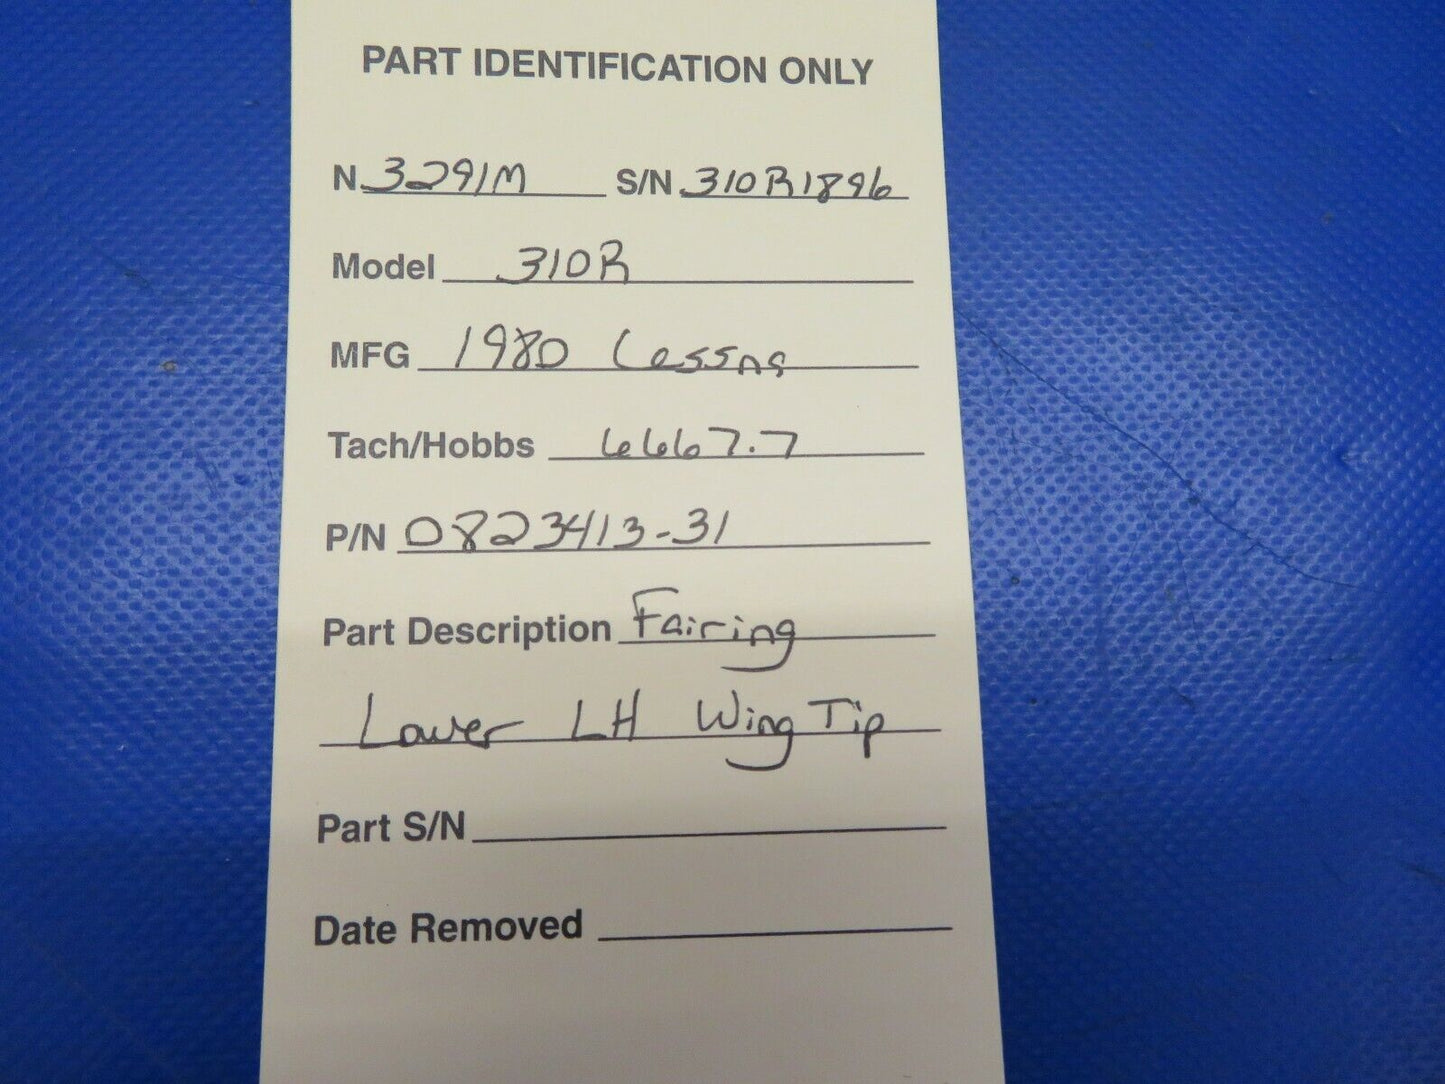 PART IDENTIFICATION ONLY
N 3291M S/N 310R1896
Model 310R
MFG 1980 Cessna
Tach/Hobbs 6667.7
P/N 0823413-31
Part Description Fairing
Lower LH Wing Tip
Part S/N
Date Removed